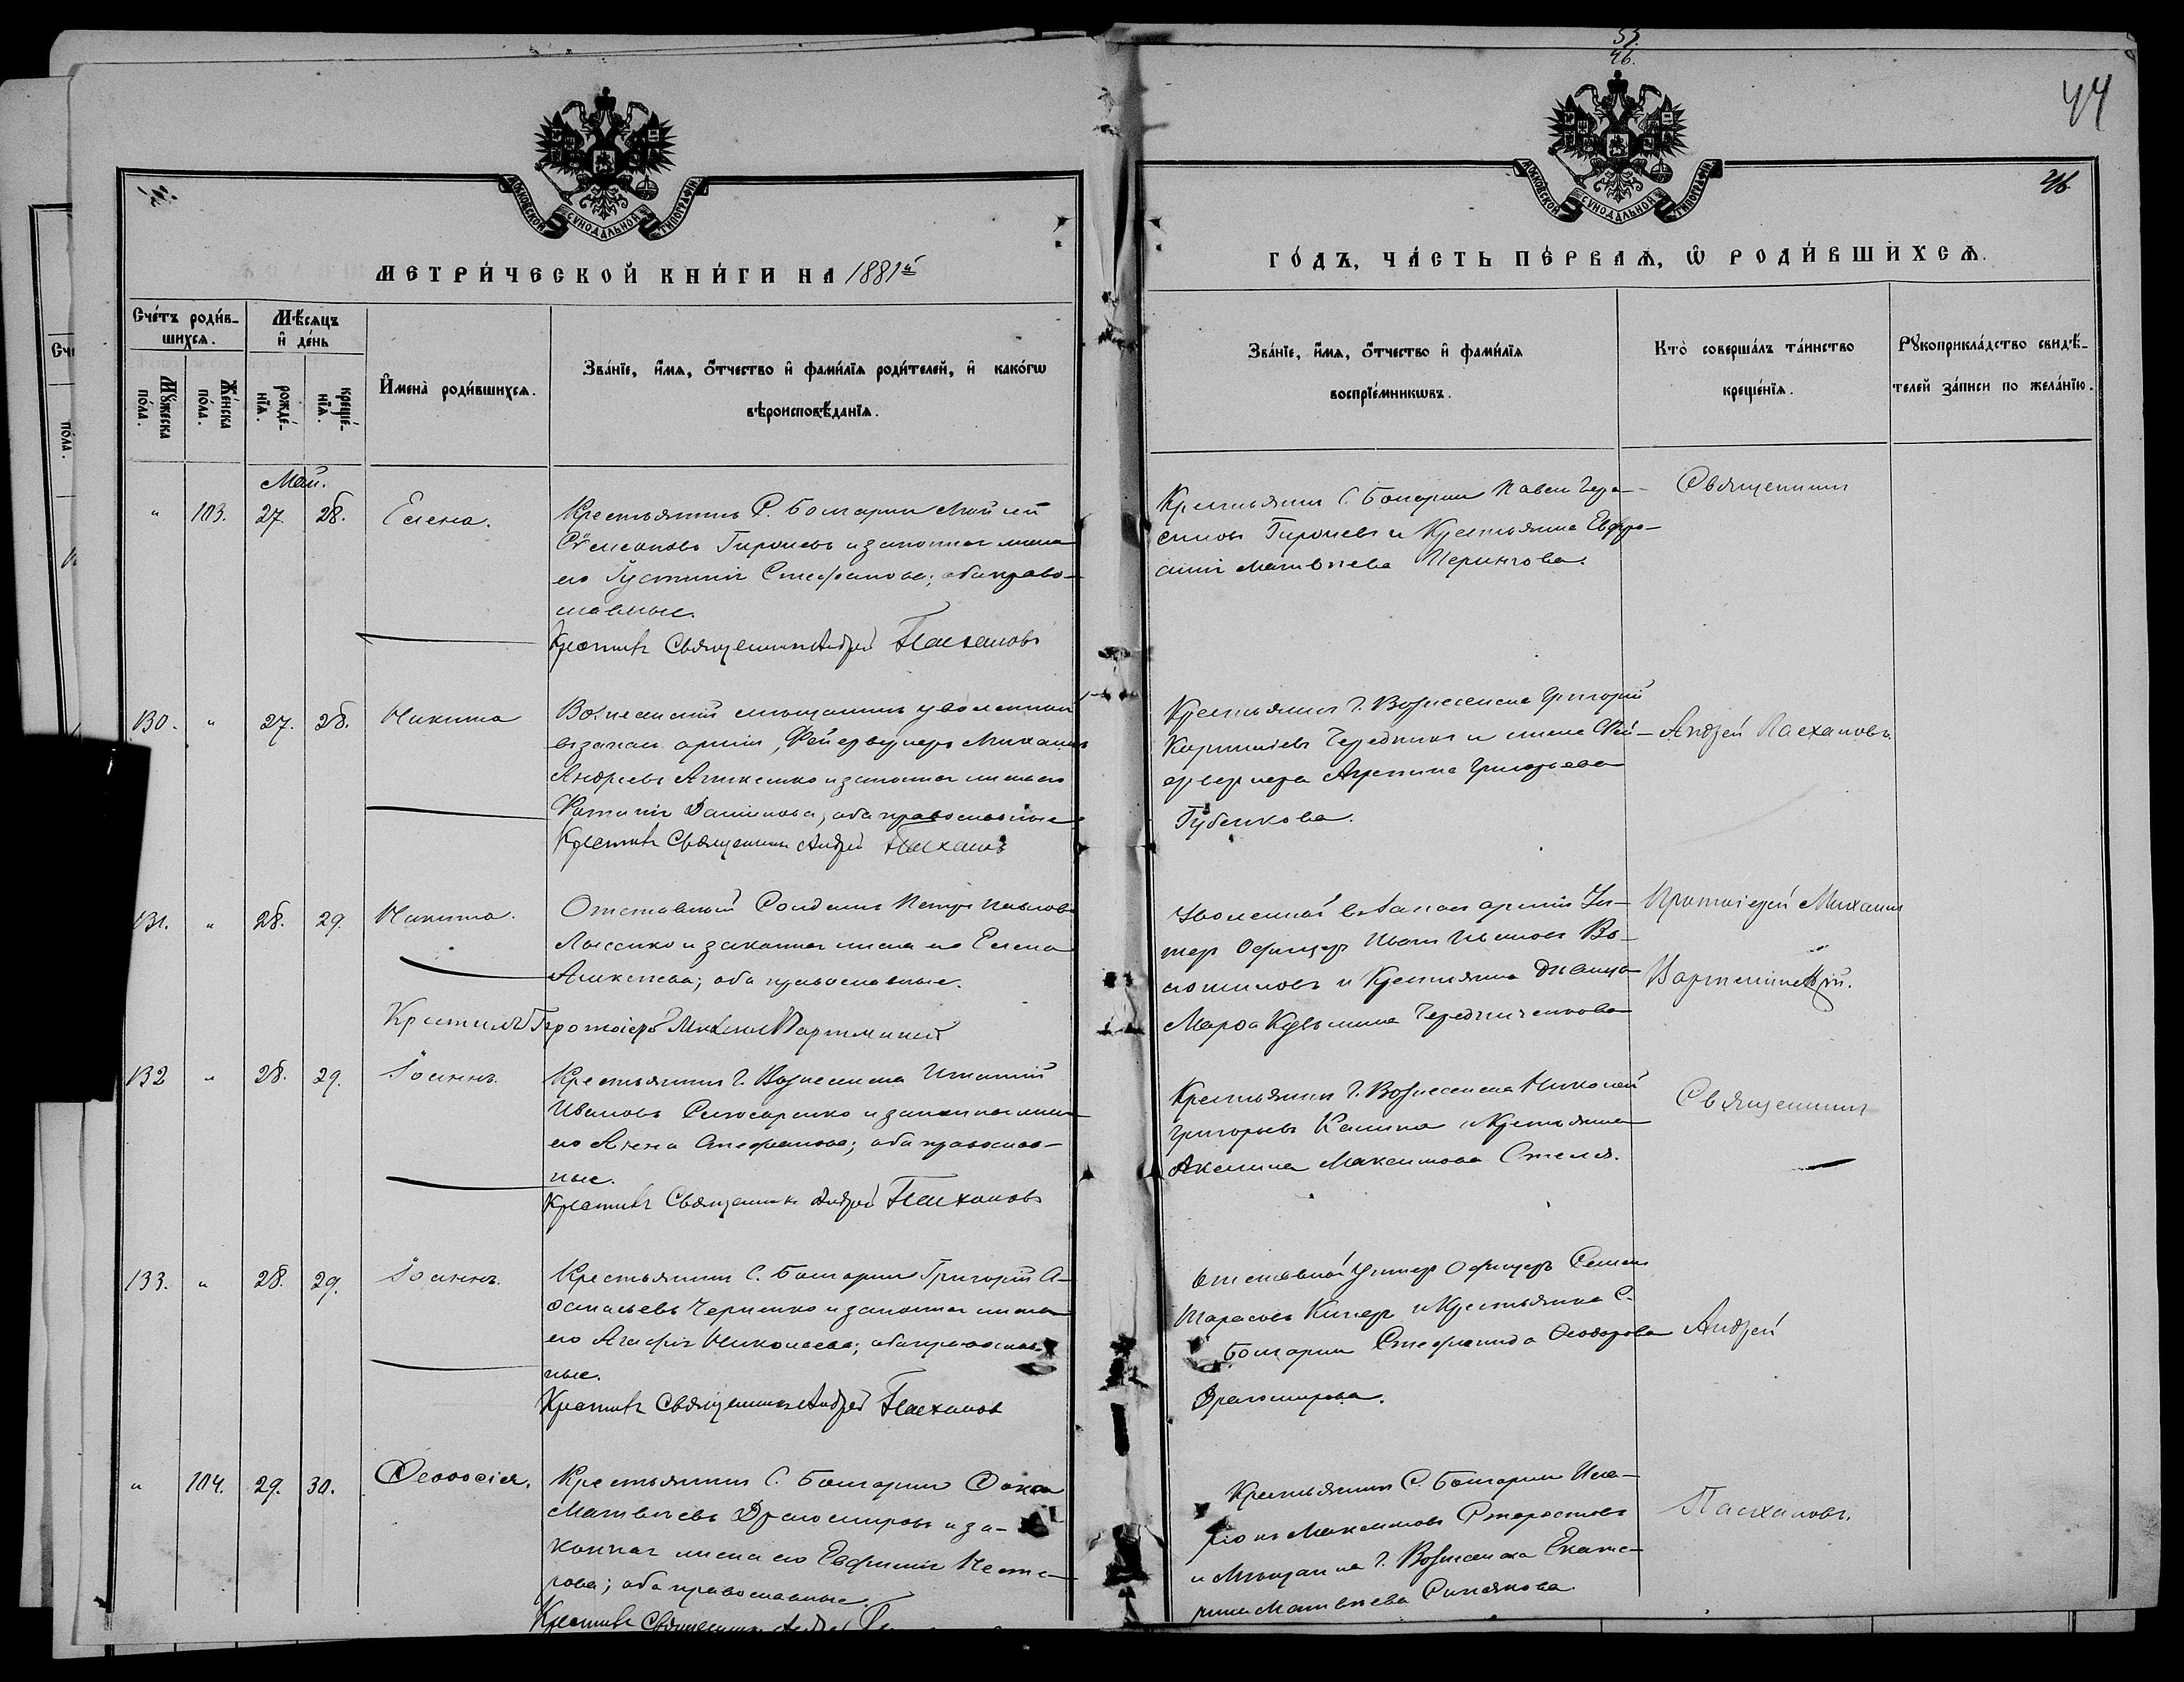 55.
46.
44
46
МОСКОВСКОЙ СѴНОДАЛЬНОЙ ТИПОГРАФІИ
МОСКОВСКОЙ СѴНОДАЛЬНОЙ ТИПОГРАФІИ
МЕТРИ́ЧЕСКОЙ КНИ́ГИ НА 1881й
ГО́ДЪ, ЧА́СТЬ ПЕ́РВАѦ, Ѡ РОДИ́ВШИХСѦ.
Сче́тъ роди́в-
шихсѧ.
Мꙋ́жеска
по́ла.
Же́нска
по́ла.
Мѣ́сѧцъ
и҆ де́нь
рожде́-
нїѧ.
креще́-
нїѧ.
И҆мена̀ роди́вшихсѧ.
Зва́нїе, и҆́мѧ, ѻ҆́тчество и҆ фами́лїѧ роди́телей, и҆ како́гѡ
вѣроисповѣ́данїѧ.
Зва́нїе, и҆́мѧ, ѻ҆́тчество и҆ фами́лїѧ
воспрїе́мникѡвъ.
Кто̀ соверша́лъ та́инство
креще́нїѧ.
Рꙋкоприкла́дство свидѣ́-
телей за́писи по жела́нїю.
Май.
" 103. 27. 28. Елена.
Крестьянинъ С. Болгарки Мойсей
Сѵмеоновъ Гирочевъ и законная жена
его Іустинія Стефанова; оба право-
славные.
Крестилъ Священникъ Андрей Пасхаловъ
Крестьянинъ С. Болгарки Павелъ Гера-
симовъ Гирочевъ и Крестьянка Евфро-
синія Матвѣева
Священникъ
130. " 27. 28. Никита
Вознесенскій мѣщанинъ уволенный
въ запасъ арміи, Фейерверкеръ Михаилъ
Андреевъ и законная жена его
Фотинія Данилова, оба православные
Крестилъ Священникъ Андрей Пасхаловъ
Крестьянинъ Г. Вознесенска Григорій
Кирилловъ Чередникъ и жена Фей-
ерверкера Агрепина Григорьева
Губенкова.
Андрей Пасхаловъ.
131. " 28. 29. Никита.
Отставной Солдатъ Петръ Павловъ
Лысенко и законная жена его Елена
Алексѣева; оба православные.
Крестилъ Протоіерей Михаилъ Вартминскій
Уволенной въ запасъ арміи Ун-
теръ Офицеръ Иванъ Ивановъ Во-
лошиновъ и Крестьянка
Марѳа Кузьмина Чередниченкова
Протоіерей Михаилъ
Вартминскій.
132 " 28. 29. Іоаннъ.
Крестьянинъ Г. Вознесенска Игнатій
Ивановъ Слюсаренко и законная жена
его Анна Стефанова; оба православ-
ные.
Крестилъ Священникъ Андрей Пасхаловъ
Крестьянинъ Г. Вознесенска Николай
Григорьевъ Калина и Крестьянка
Акилина Максимова
Священникъ
133. " 28. 29. Іоаннъ.
Крестьянинъ С. Болгарки Григорій А-
ѳанасьевъ Черненко и законная жена
его Агафія Николаева; оба православ-
ные.
Крестилъ Священникъ Андрей Пасхаловъ
Отставной Унтеръ Офицеръ Семенъ
Тарасовъ и Крестьянка С.
Болгарки Стефанида Ѳеодорова
Драгомирова.
Андрей
" 104. 29. 30. Ѳеодосія.
Крестьянинъ С. Болгарки Ѳока
Матвѣевъ Драгомировъ и за-
конная жена его Евфимія Несте-
рова; оба православные.
Крестилъ Священникъ Андрей
Крестьянинъ С. Болгарки Ила-
ріонъ Максимовъ Старостовъ
и Мѣщанка Г. Вознесенска Екате-
рина Матвѣева Синякова.
Пасхаловъ.